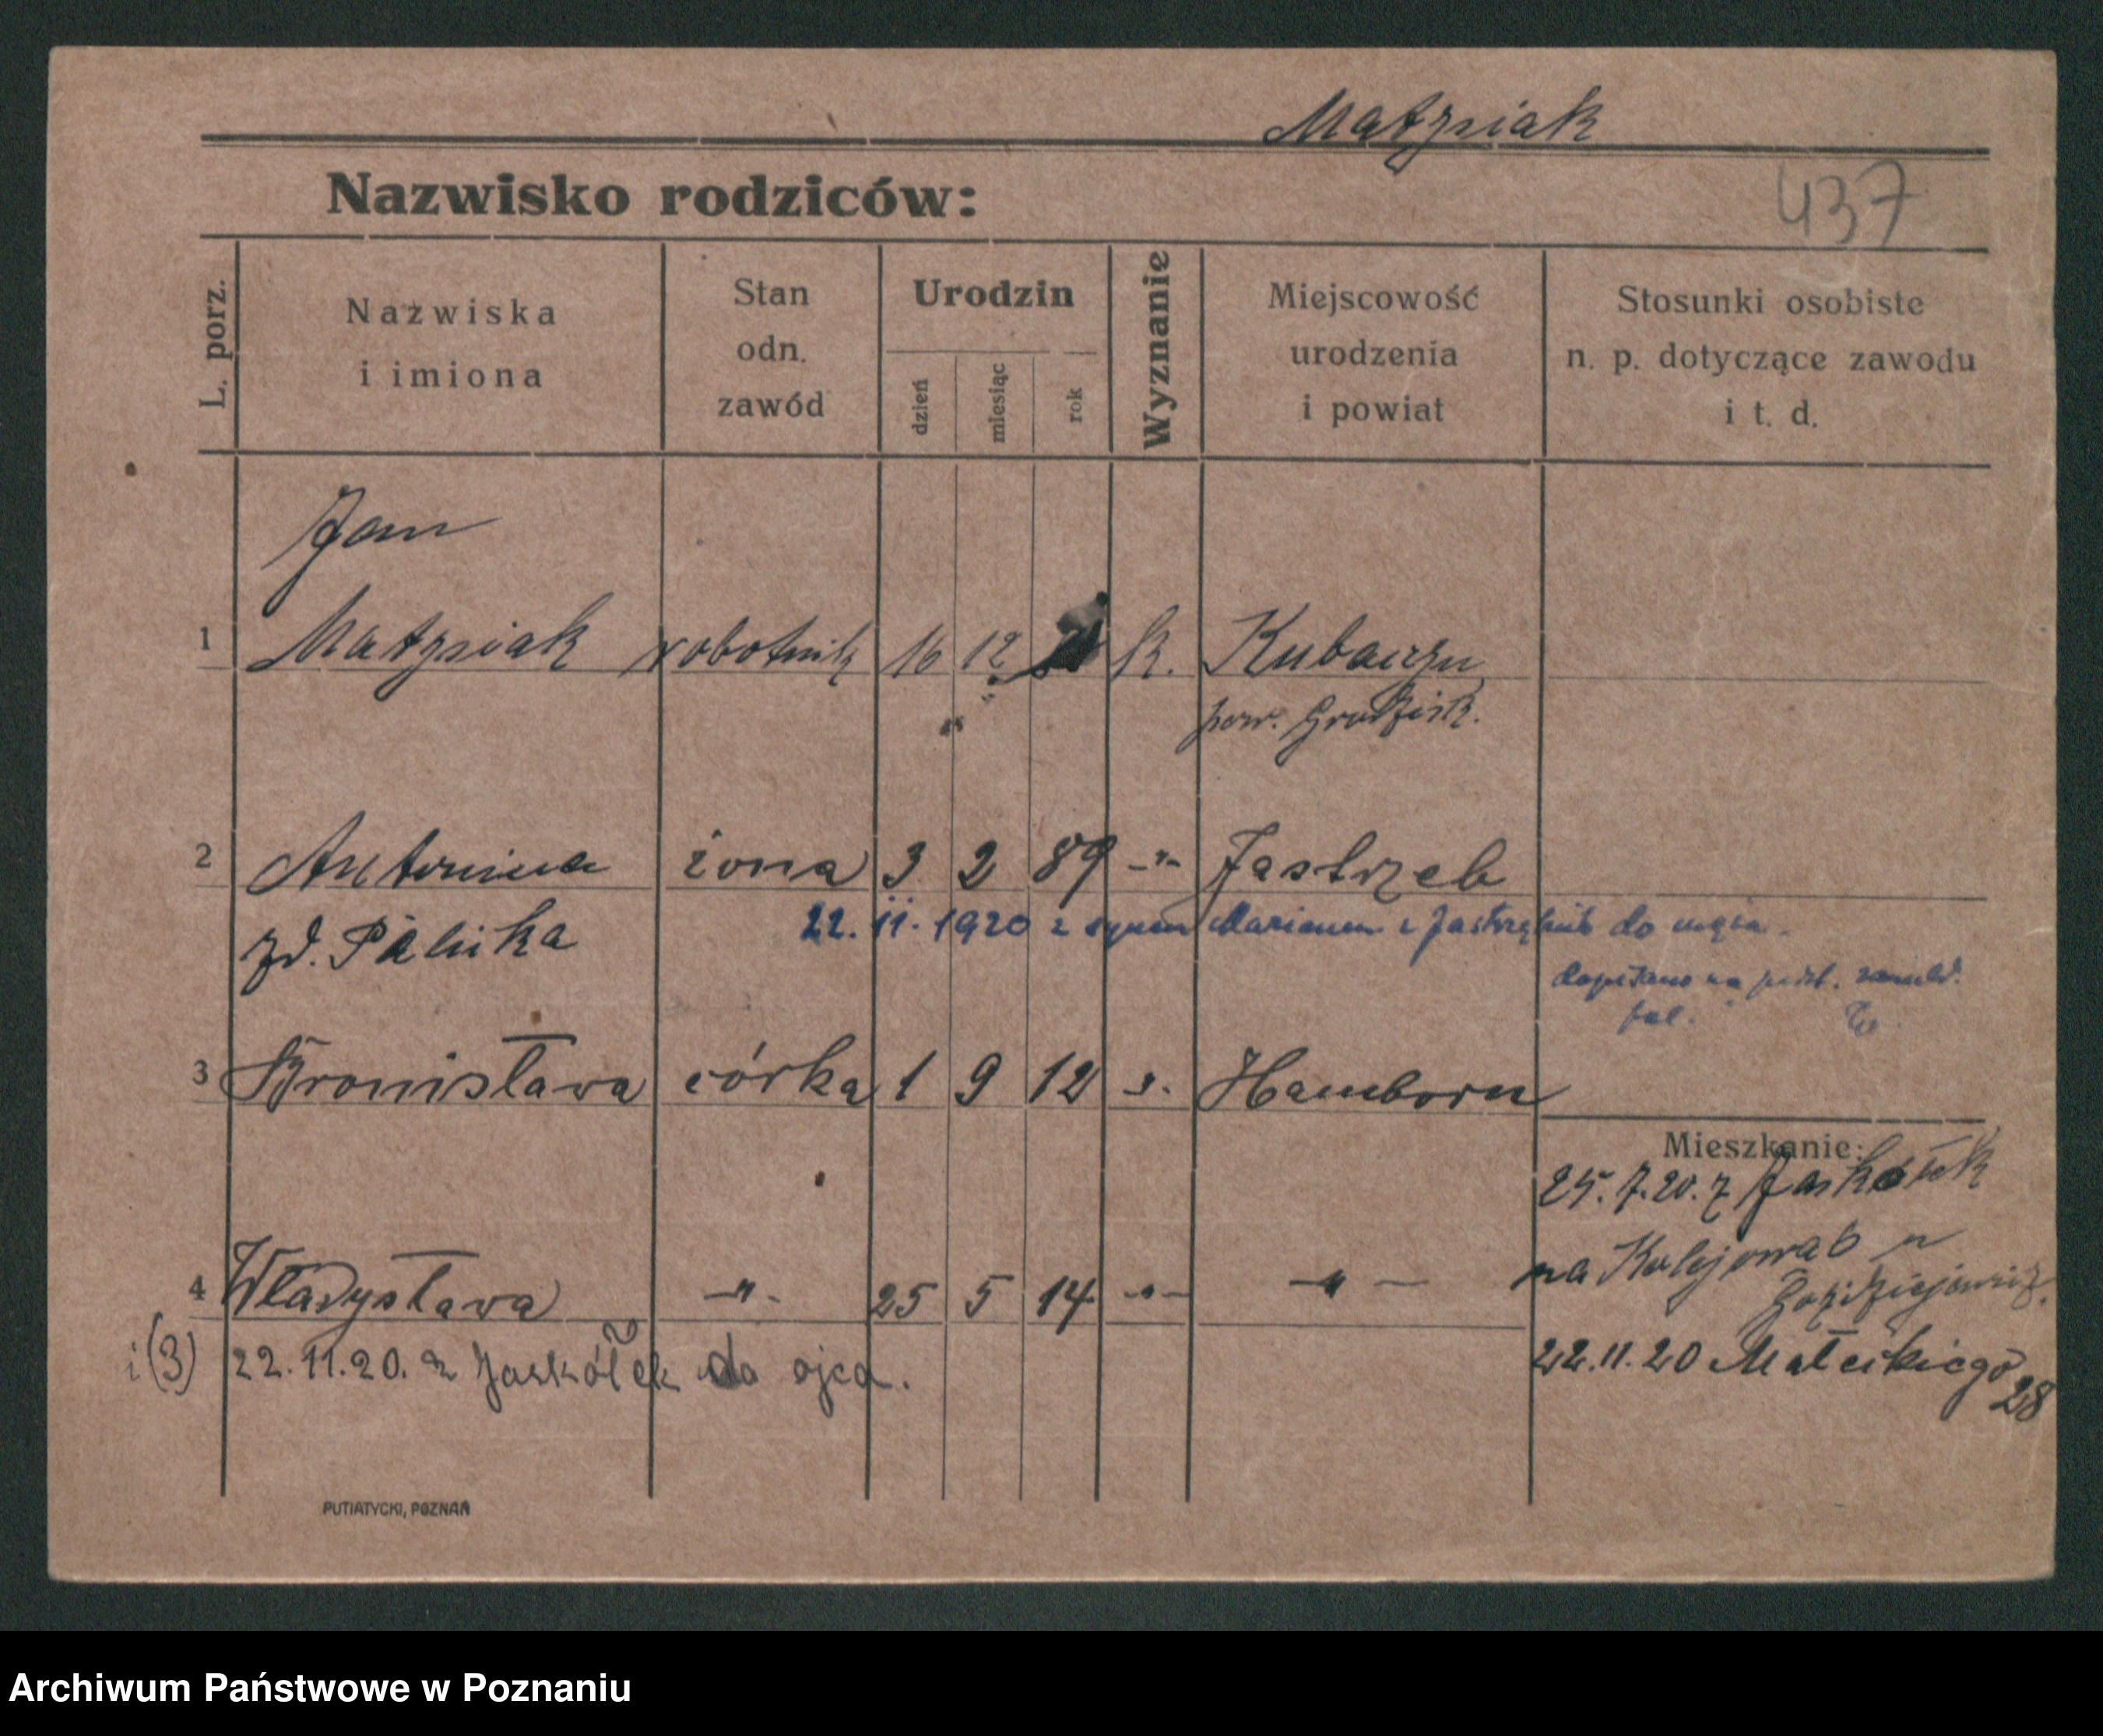 Matysiak
Nazwisko rodziców:
437
L. porz.
Nazwiska
i imiona
Stan
odn.
zawód
Urodzin
dzień
miesiąc
rok
Wyznanie
Miejscowość
urodzenia
i powiat
Stosunki osobiste
n. p. dotyczące zawodu
i t. d.
Jan
1 Matysiak robotnik 16 12 k.
pow. Grodzisk.
2 Antonina żona 3 2 89 -"- Jastrzeb
zd.
22. 11. 1920 z synem Marianem z do męża
dopisano na podst. zameld.
3 Bronisława córka 1 9 12 -"- Hamborn
Mieszkanie:
25.7.20. z Jaskółek
na
4 Władysława -"- 25 5 14 -"- -"-
i (3) 22.11.20. z Jaskółek do ojca.
22.11.20 Małeckiego
28
PUTIATYCKI, POZNAŃ
Archiwum Państwowe w Poznaniu